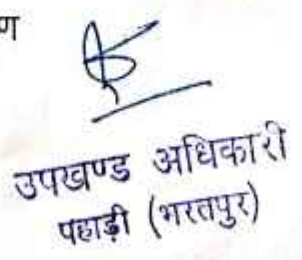 ण
उपखण्ड अधिकारी
पहाड़ी (भरतपुर)